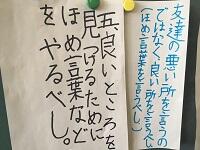 友達の悪い所を言うの
ではなく、良い所を言
(ほめ言葉を言うべし)
五、良いところを
見つけるために
ほめ言葉など
を やるべし。